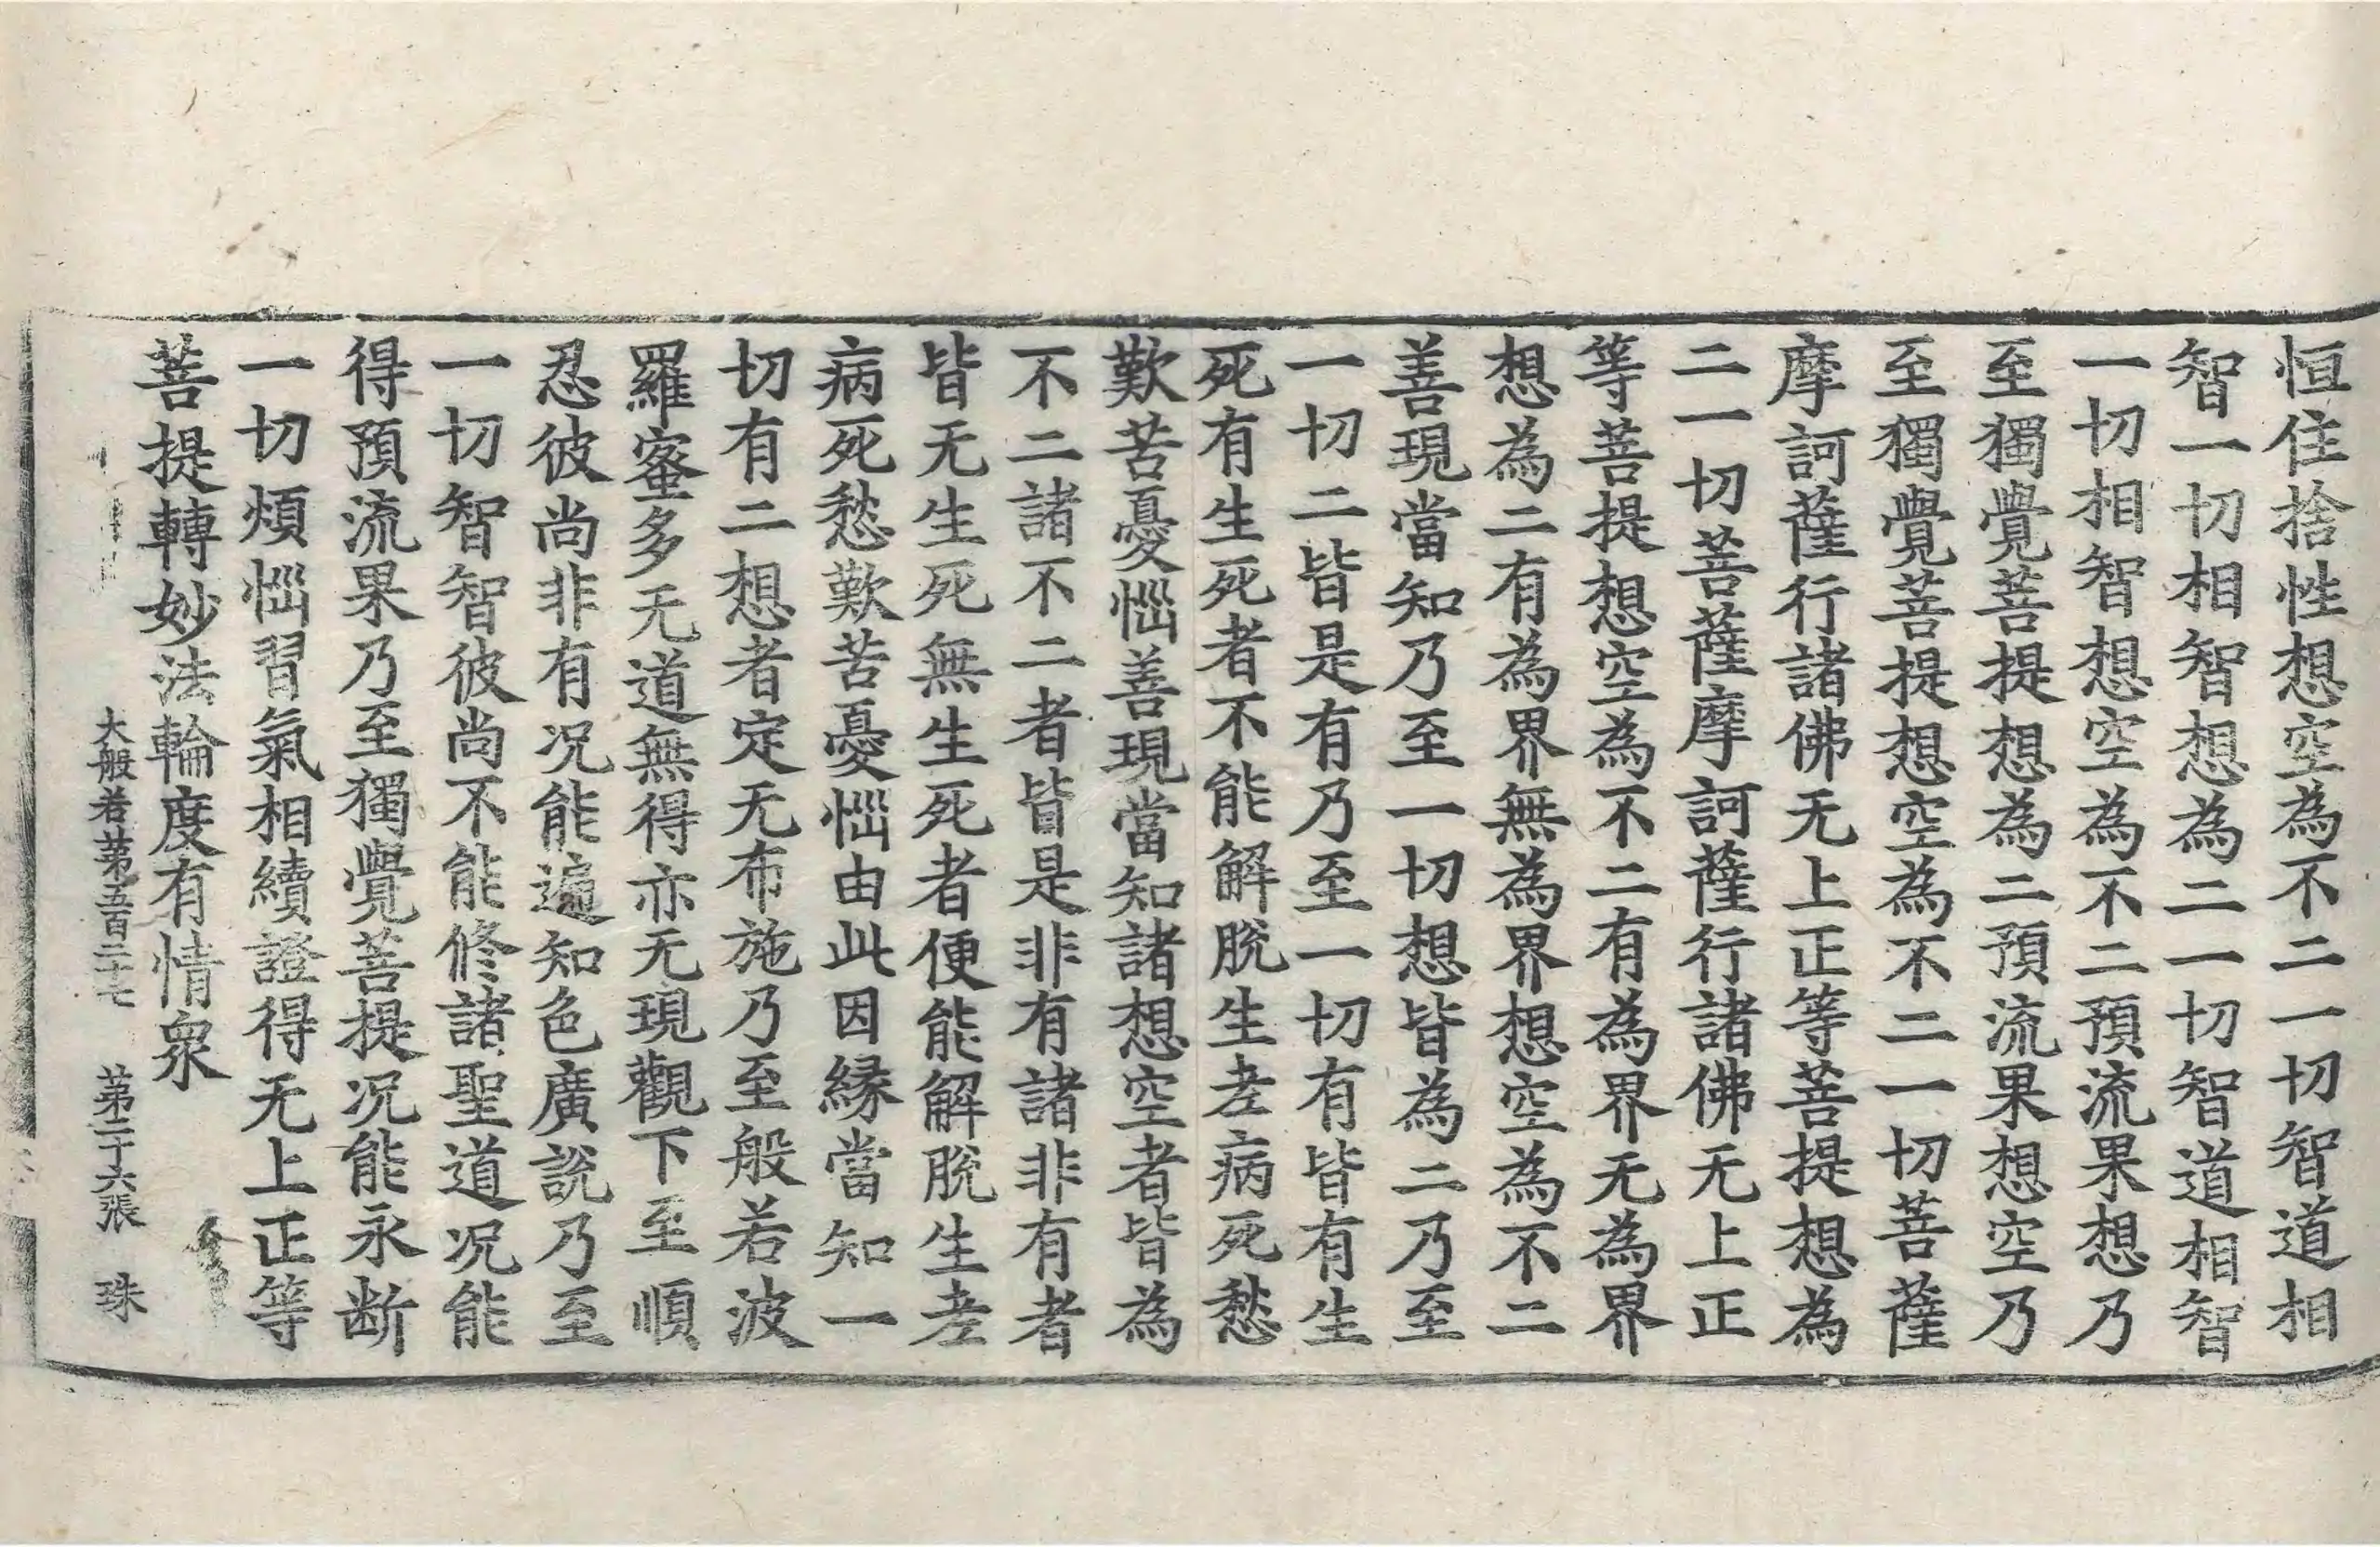 恒住捨性想空為不二一切智道相
智一切相智想為二一切智道相智
一切相智想空為不二預流果想乃
至獨覺菩提想為二預流果想空乃
至獨覺菩提想空為不二一切菩薩
摩訶薩行諸佛无上正等菩提想為
二一切菩薩摩訶薩行諸佛无上正
等菩提想空為不二有為界无為界
想為二有為界無為界想空為不二
善現當知乃至一切想皆為二乃至
一切二皆是有乃至一切有皆有生
死有生死者不能解脫生老病死愁
歎苦憂惱善現當知諸想空者皆為
不二諸不二者皆是非有諸非有者
皆无生死無生死者便能解脫生老
病死愁歎苦憂惱由此因緣當知一
切有二想者定无布施乃至般若波
羅蜜多无道無得亦无現觀下至順
忍彼尚非有況能遍知色廣說乃至
一切智智彼尚不能修諸聖道況能
得預流果乃至獨覺菩提況能永断
一切煩惱習氣相續證得无上正等
菩提轉妙法輪度有情衆
大般若第五百二十七 第二十六張 珠